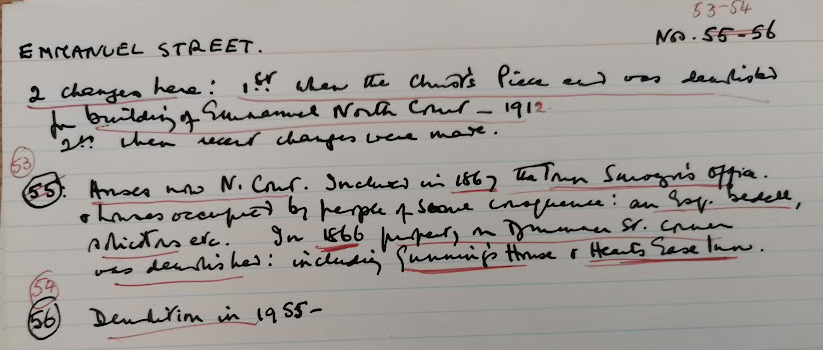 53-54
EMMANUEL STREET. Nos. 55-56
2 changes here: 1st when the Christ's Piece end was demolished
for building of Emmanuel North Court - 1912.
2nd when recent changes were made.
53
55: Houses now N. Court. Included in 1867 the Town Surveyor's office.
& houses occupied by people of some consequence: an Esq. Bedell,
solicitors etc. In 1866 property on Drummer St. corner
was demolished: including Gunning's House & Hearts Ease Inn.
54
56 Demolition in 1955-